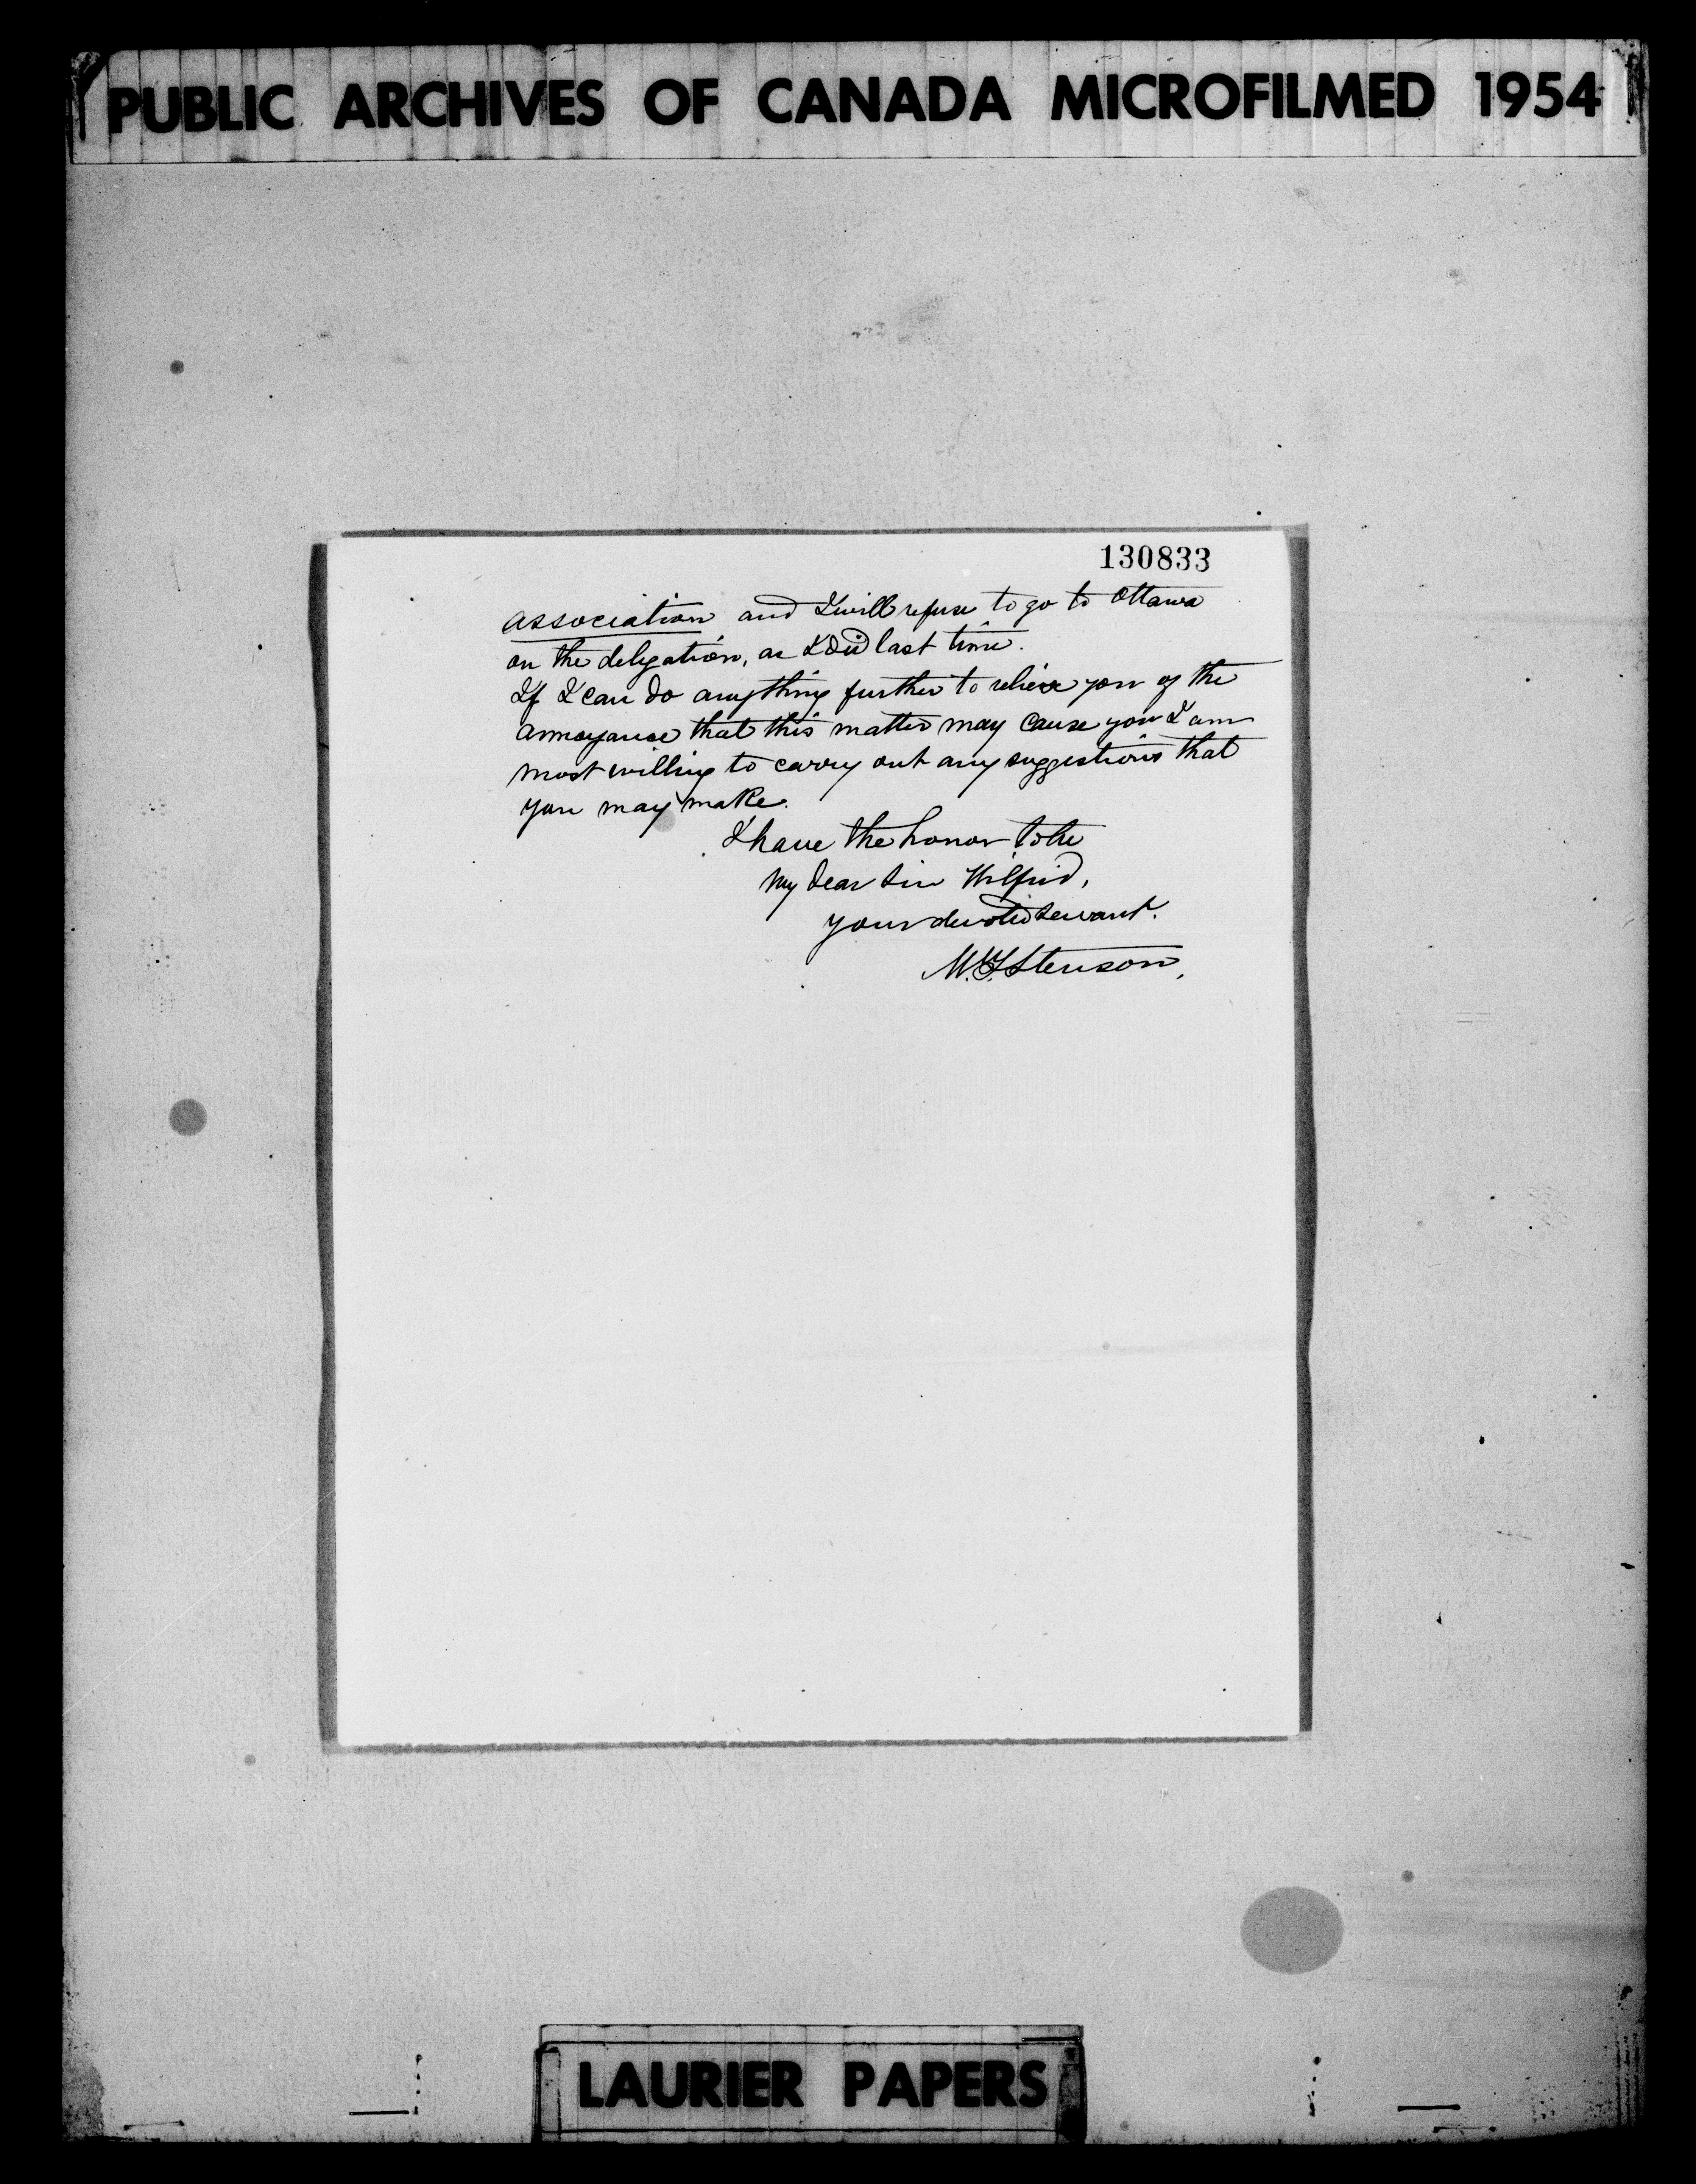 PUBLIC ARCHIVES OF CANADA MICROFILMED 1954
130833
association and I will refuse to go to Ottawa
on the delegation, as I did last time.
If I can do anything further to relieve you of the
annoyance that this matter may cause you I am
most willing to carry out any suggestions that
you may make.
I have the honor to be
My dear Sir Wilfrid,
your devoted servant.
M.T. Stenson,
LAURIER PAPERS